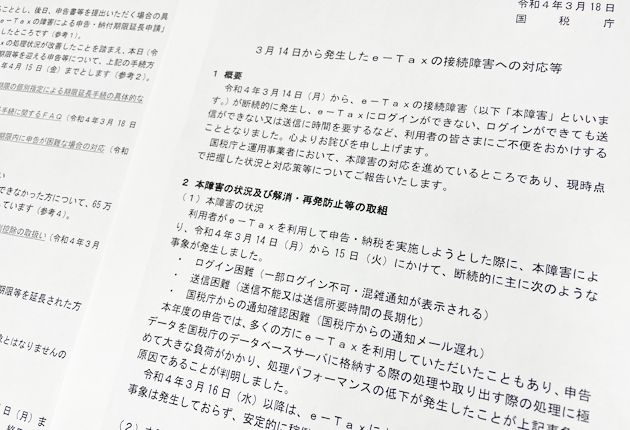 こととし、後日、申告書等を提出いただく場合の具
e－Taxの障害による申告・納付期限延長申請」
したところです（参考１）。
xの処理状況が改善したことを踏まえ、本日（令
期限等を迎える申告等について、上記の手続方
年４月15日（金）までとします（参考２）。
期限の個別指定による期限延長手続の具体的な
手続に関するＦＡＱ（令和４年３月18日
期限内に申告が困難な場合の対応（令和
できなかった方について、65万
しています（参考４）。
控除の取扱い（令和４年３月
期限等を延長された方
象とはなりませんの
日（月）ま
令和４年３月18日
国税庁
３月14日から発生したｅ－Ｔａｘの接続障害への対応等
１ 概要
令和４年３月14日（月）から、ｅ－Ｔａｘの接続障害（以下「本障害」といいま
す。）が断続的に発生し、ｅ－Ｔａｘにログインができない、ログインができても送
信ができない又は送信に時間を要するなど、利用者の皆さまにご不便をおかけする
こととなりました。心よりお詫びを申し上げます。
国税庁と運用事業者において、本障害の対応を進めているところであり、現時点
で把握した状況と対応策等についてご報告いたします。
２ 本障害の状況及び解消・再発防止等の取組
（１）本障害の状況
利用者がｅ－Ｔａｘを利用して申告・納税を実施しようとした際に、本障害によ
り、令和４年３月14日（月）から15日（火）にかけて、断続的に主に次のような
事象が発生しました。
・ ログイン困難（一部ログイン不可・混雑通知が表示される）
・ 送信困難（送信不能又は送信所要時間の長期化）
・ 国税庁からの通知確認困難（国税庁からの通知メール遅れ）
本年度の申告では、多くの方にｅ－Ｔａｘを利用していただいたこともあり、申告
データを国税庁のデータベースサーバに格納する際の処理や取り出す際の処理に極
めて大きな負荷がかかり、処理パフォーマンスの低下が発生したことが上記事
原因であることが判明しました。
令和４年３月16日（水）以降は、ｅ－Ｔａｘに
事象は発生しておらず、安定的に稼
（２）